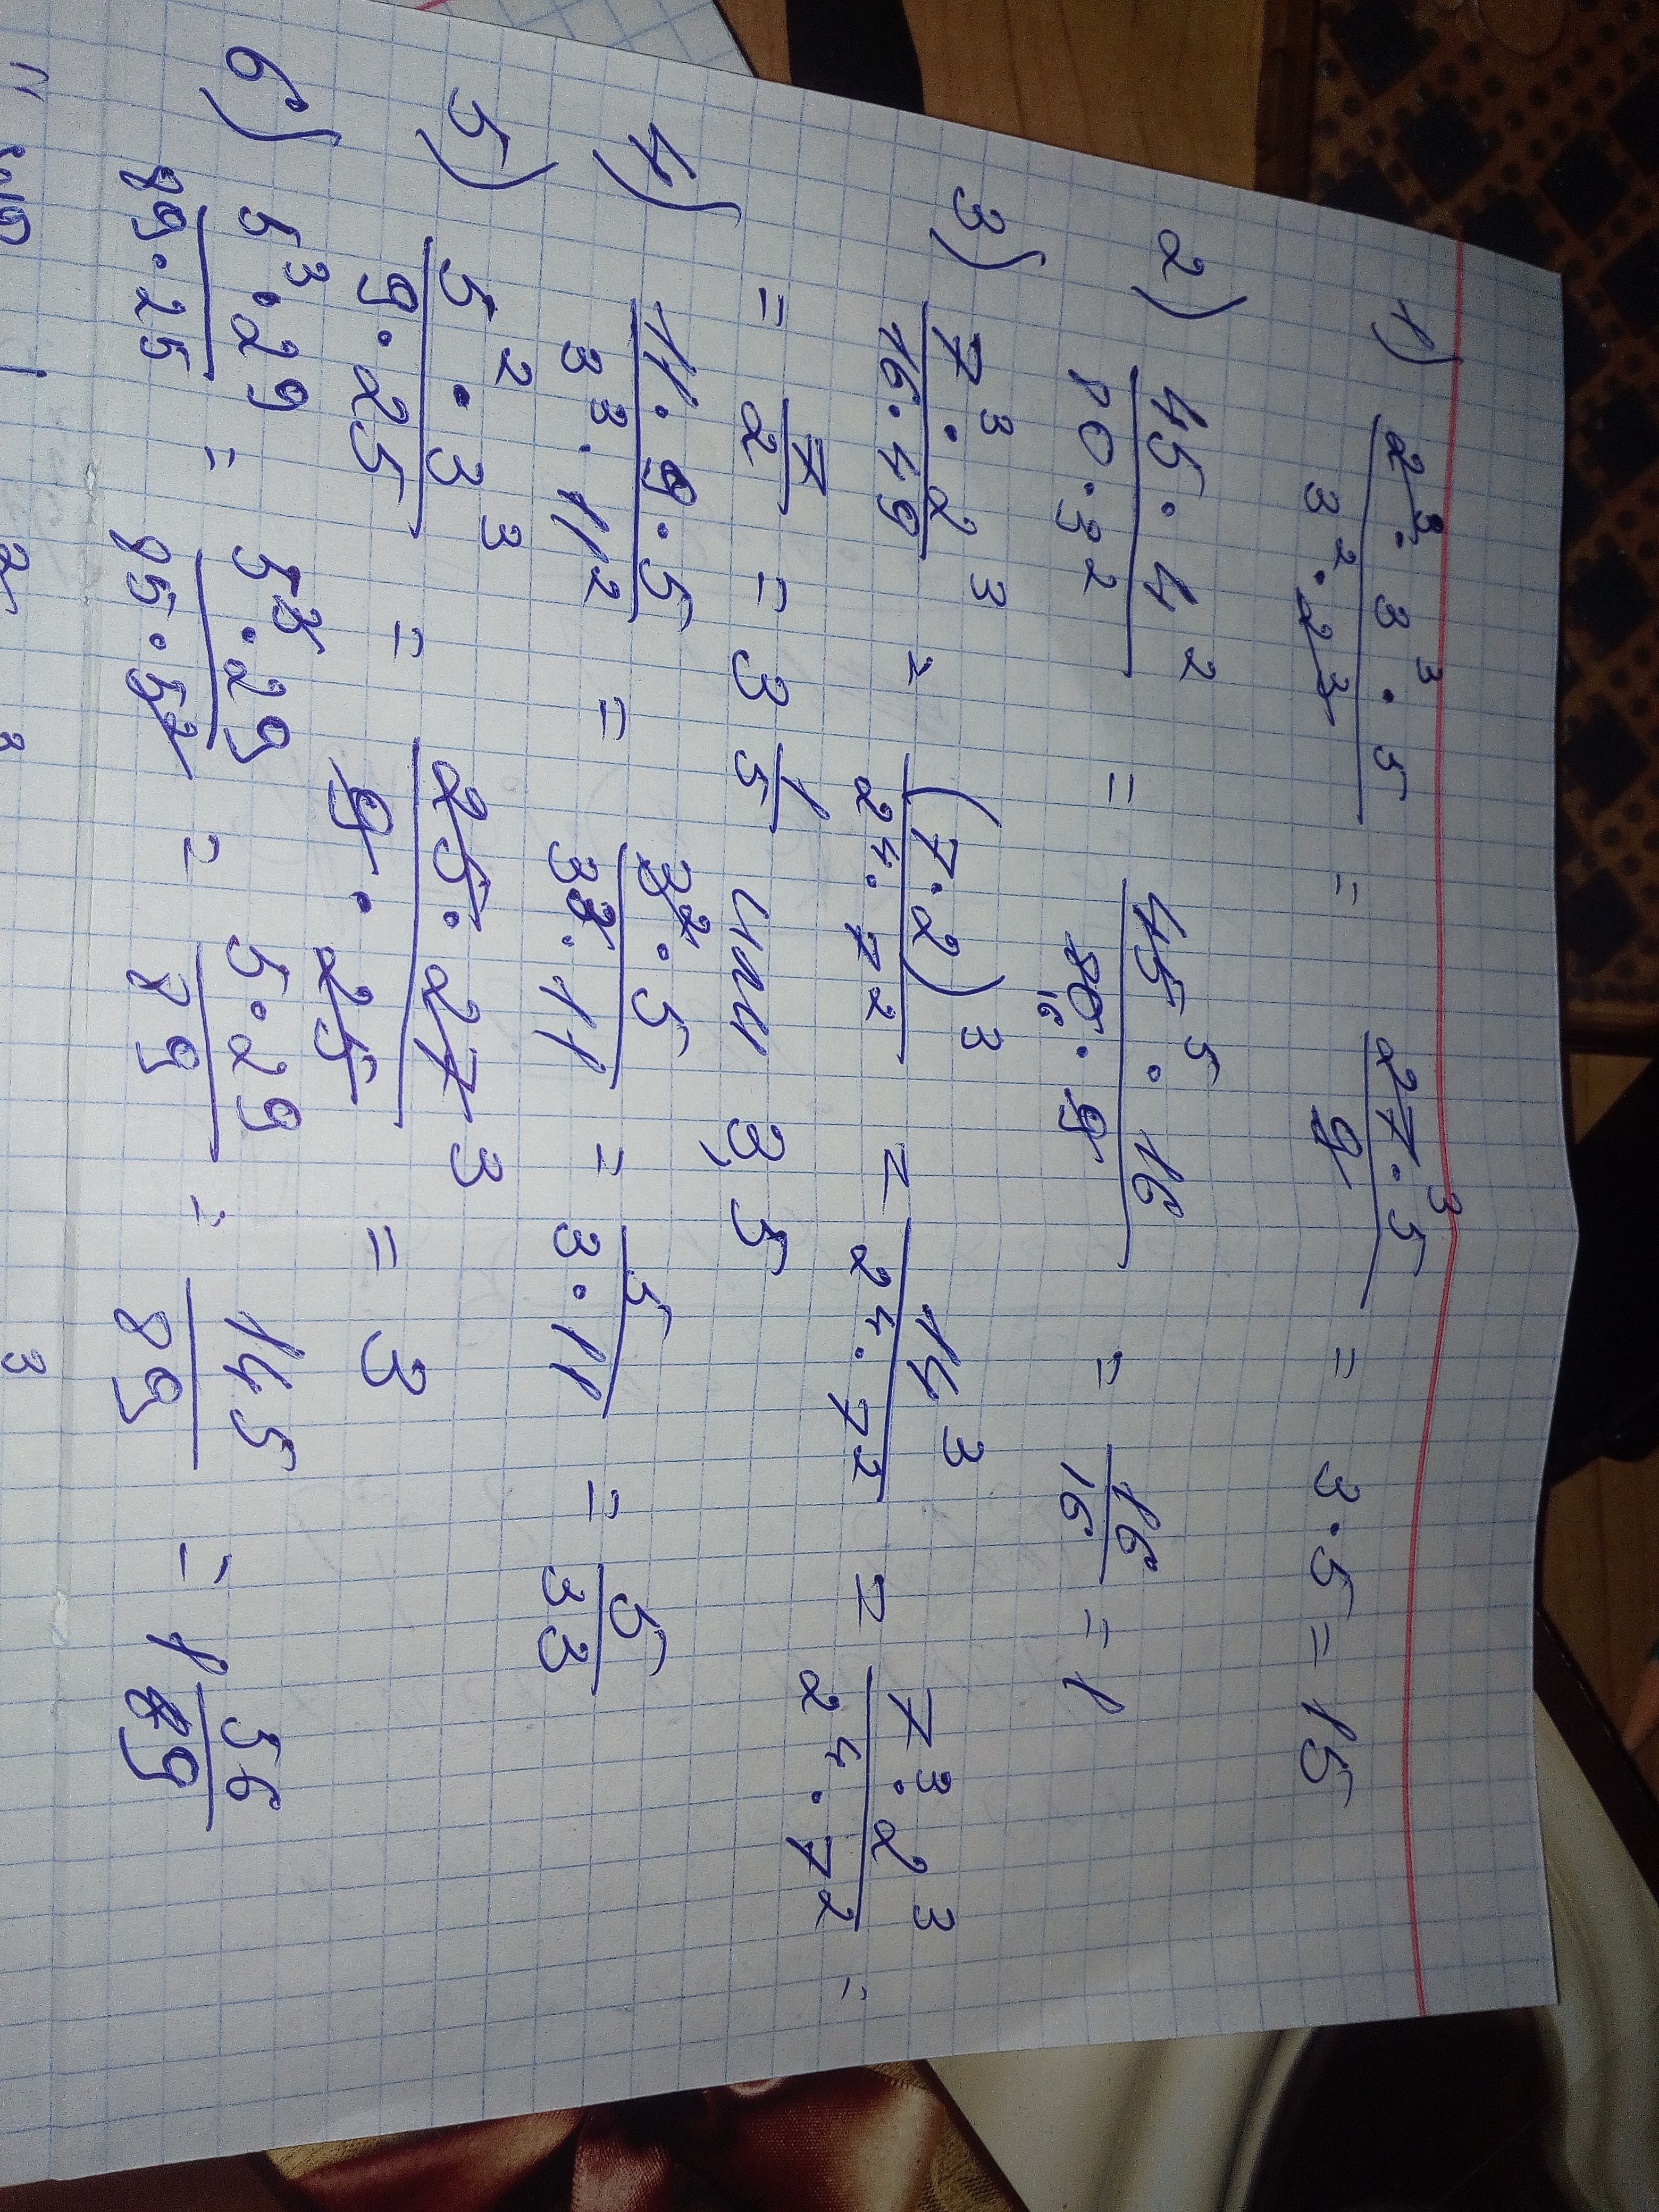 1) (2³ · 3³ · 5)/(3² · 2³) = (27³ · 5)/9 = 3 · 5 = 15
2) (45 · 4²)/(80 · 3²) = (45⁵ · 16)/(80₁₆ · 9) = 16/16 = 1
3) (7³ · 2³)/(16 · 49) = (7·2)³/(2⁴ · 7²) = 14³/(2⁴ · 7²) = (7³ · 2³)/(2⁴ · 7²) =
= 7/2 = 3 1/5 или 3,5
4) (11 · 9 · 5)/(3³ · 11²) = (3² · 5)/(3³ · 11) = 5/(3 · 11) = 5/33
5) (5² · 3³)/(9 · 25) = (25 · 27 3)/(9 · 25) = 3
6) (5³ · 29)/(89 · 25) = (5³ · 29)/(85 · 5²) = (5 · 29)/89 = 145/89 = 1 56/89